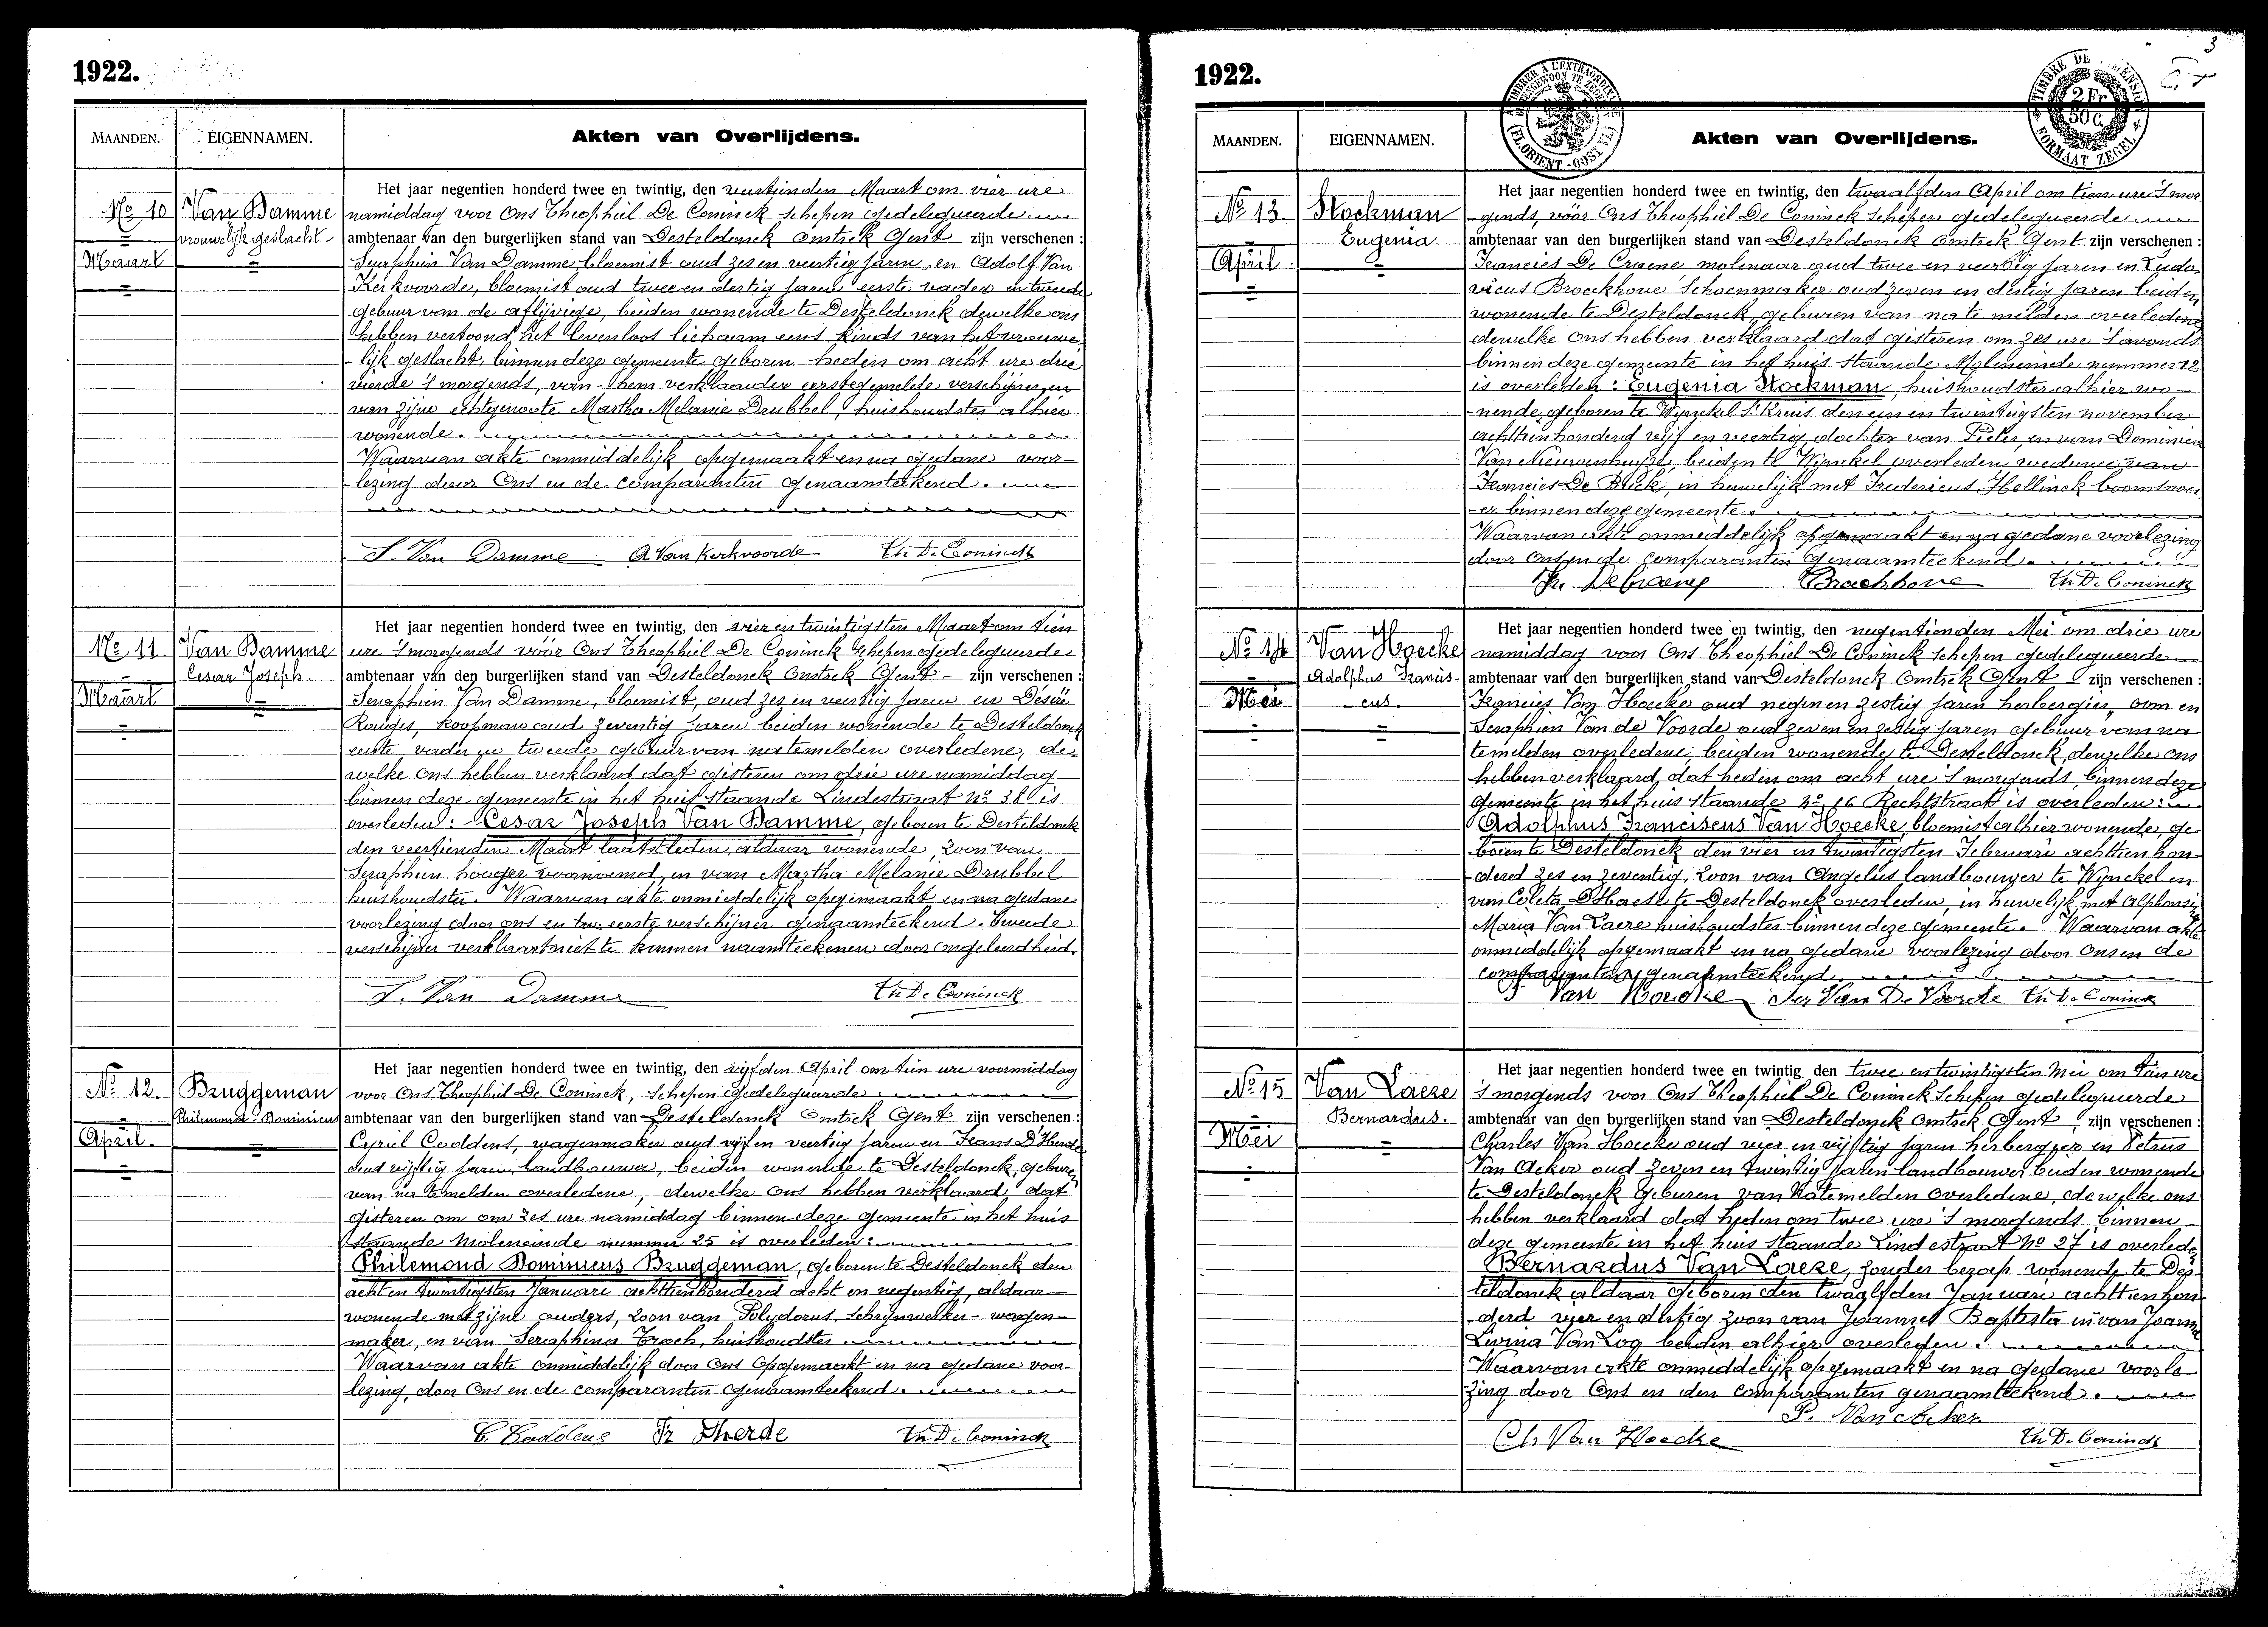 1922.
MAANDEN. EIGENNAMEN. Akten van Overlijdens.
No 10
Maart
Van Damme
vrouwelijk geslacht
Het jaar negentien honderd twee en twintig, den veertienden Maart om vier ure
namiddag voor Ons Theophiel De Coninck schepen gedelegueerde
ambtenaar van den burgerlijken stand van Desteldonck Omtrek Gent zijn verschenen :
Seraphien Van Damme, bloemist oud zes en veertig jaren, en Adolf Van
Kerkvoorde, bloemist oud twee en dertig jaren eerste vader en tweede
gebuur van de aflijvige, beiden wonende te Desteldonck dewelke ons
hebben vertoond het levenloos lichaam eens kinds van het vrouwe-
-lijk geslacht, binnen deze gemeente geboren heden om acht ure drie
vierde 's morgends, van hem verklaarder eerstgemelde verschijner, en
van zijne echtgenoote Martha Melanie Drubbel, huishoudster alhier
wonende.
Waarvan akte onmiddelijk opgemaakt en na gedane voor-
lezing door Ons en de comparanten genaamteekend.
S. Van Damme A Van Kerkvoorde Th. De Coninck
No 11
Maart
Van Damme
Cesar Joseph
Het jaar negentien honderd twee en twintig, den vier en twintigsten Maart om tien
ure 's morgends vóór Ons Theophiel De Coninck schepen gedelegueerde
ambtenaar van den burgerlijken stand van Desteldonck Omtrek Gent - zijn verschenen :
Seraphien Van Damme, bloemist, oud zes en veertig jaren en Désiré
koopman oud zeventig jaren beiden wonende te Desteldonck
eerste vader en tweede gebuur van na te melden overledene, de-
welke ons hebben verklaard dat gisteren om drie ure namiddag
binnen deze gemeente in het huis staande Lindestraat No 38 is
overleden : Cesar Joseph Van Damme, geboren te Desteldonck
den veertienden Maart laatstleden, aldaar wonende, zoon van
Seraphien hooger voornoemd, en van Martha Melanie Drubbel
huishoudster. Waarvan akte onmiddelijk opgemaakt en na gedane
voorlezing door ons en eerste verschijner genaamteekend. Tweede
verschijner verklaart niet te kunnen naamteekenen door ongeleerdheid.
S. Van Damme Th. De Coninck
No 12.
April.
Bruggeman
Philemond Dominicus
Het jaar negentien honderd twee en twintig, den vijfden April om tien ure voormiddag
voor Ons Theophiel De Coninck, schepen gedelegueerde
ambtenaar van den burgerlijken stand van Desteldonck Omtrek Gent zijn verschenen :
Cyriel Coddens, wagenmaker oud vijf en veertig jaren en
oud vijftig jaren, landbouwer, beiden wonende te Desteldonck, geburen
van na te melden overledene, dewelke ons hebben verklaard dat
gisteren om om zes ure namiddag binnen deze gemeente in het huis
staande Moleneinde nummer 25 is overleden :
Philemond Dominicus Bruggeman, geboren te Desteldonck den
acht en twintigsten Januari achttienhonderd acht en negentig, aldaar
wonende met zijne ouders, zoon van Polydorus, schrijnwerker - wagen-
maker, en van Seraphina Troch, huishoudster
Waarvan akte onmiddelijk door Ons opgemaakt en na gedane voor-
lezing, door Ons en de comparanten genaamteekend.
C. Coddens Fr Dherde Th. De Coninck
3
1922.
TIMBRE DE DIMENSION 2 Fr 50 c. FORMAAT ZEGEL
MAANDEN. EIGENNAMEN. Akten van Overlijdens.
No 13.
April.
Stockman
Eugenia
Het jaar negentien honderd twee en twintig, den twaalfden April om tien ure 's mor-
-gends, vóór Ons Theophiel De Coninck schepen gedelegueerde
ambtenaar van den burgerlijken stand van Desteldonck Omtrek Gent zijn verschenen :
Francies De Craene molenaar oud twee en veertig jaren en Ludo-
vicus Braeckhove schoenmaker oud zeven en dertig jaren beiden
wonende te Desteldonck, geburen van na te melden overledene
dewelke ons hebben verklaard dat gisteren om zes ure 's avonds
binnen deze gemeente in het huis staande Moleneinde nummer 12
is overleden : Eugenia Stockman, huishoudster alhier wo-
-nende, geboren te Wynckel St Kruis den een en twintigsten november
achttienhonderd vijf en veertig dochter van Pieter, en van Dominica
Van Nieuwenhuyse, beiden te Wynckel overleden, weduwe van
Francies De Buck, in huwelijk met Fredericus Hellinck boomsnoei-
-er binnen deze gemeente.
Waarvan akte onmiddelijk opgemaakt en na gedane voorlezing
door Ons en de comparanten genaamteekend.
Fr. De Craene Braeckhove Th. De Coninck
No 14
Mei
Van Hoecke
Adolphus Francis-
cus.
Het jaar negentien honderd twee en twintig, den negentienden Mei om drie ure
namiddag voor Ons Theophiel De Coninck schepen gedelegueerde
ambtenaar van den burgerlijken stand van Desteldonck Omtrek Gent zijn verschenen :
Francies Van Hoecke oud negen en zestig jaren herbergier, oom en
Seraphien Van de Voorde, oud zeven en zestig jaren gebuur van na
te melden overledene, beiden wonende te Desteldonck, dewelke ons
hebben verklaard, dat heden om acht ure 's morgends, binnen deze
gemeente in het huis staande No 16 Rechtstraat is overleden :
Adolphus Franciscus Van Hoecke, bloemist alhier wonende, ge-
boren te Desteldonck den vier en twintigsten Februari achttien hon-
-derd zes en zeventig, zoon van Angelus landbouwer te Wynckel en
van Coleta D'Haese te Desteldonck overleden, in huwelijk met Alphonsina
Maria Van Laere huishoudster binnen deze gemeente. Waarvan akte
onmiddelijk opgemaakt en na gedane voorlezing door Ons en de
comparanten genaamteekend.
F Van Hoecke Ser Van De Voorde Th. De Coninck
No 15
Mei
Van Laere
Bernardus.
Het jaar negentien honderd twee en twintig, den twee en twintigsten Mei om tien ure
's morgends voor Ons Theophiel De Coninck Schepen gedelegueerde
ambtenaar van den burgerlijken stand van Desteldonck Omtrek Gent, zijn verschenen :
Charles Van Hoecke oud vier en vijftig jaren herbergier en Petrus
Van Acker oud zeven en twintig jaren landbouwer beiden wonende
te Desteldonck geburen van natemelden overledene, dewelke ons
hebben verklaard dat heden om twee ure 's morgends, binnen
deze gemeente in het huis staande Lindestraat No 27 is overleden
Bernardus Van Laere, zonder beroep wonende te Des-
teldonck aldaar geboren den twaalfden Januari achttien hon-
-derd vier en dertig zoon van Joannes Baptista en van Joanna
Livina Van Loo beiden alhier overleden.
Waarvan akte onmiddelijk opgemaakt en na gedane voorle-
zing door Ons en den comparanten genaamteekend.
P. Van Acker
Ch Van Hoecke Th. De Coninck